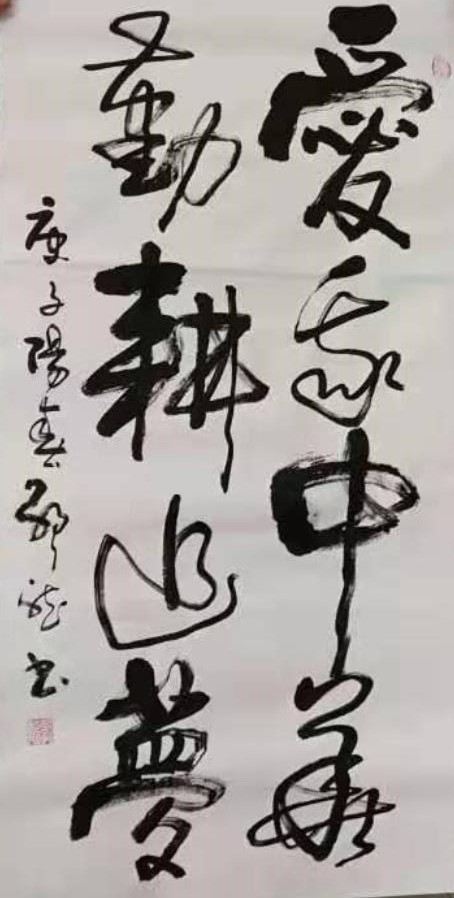 愛我中華
勤耕追夢
庚子陽春 龍書